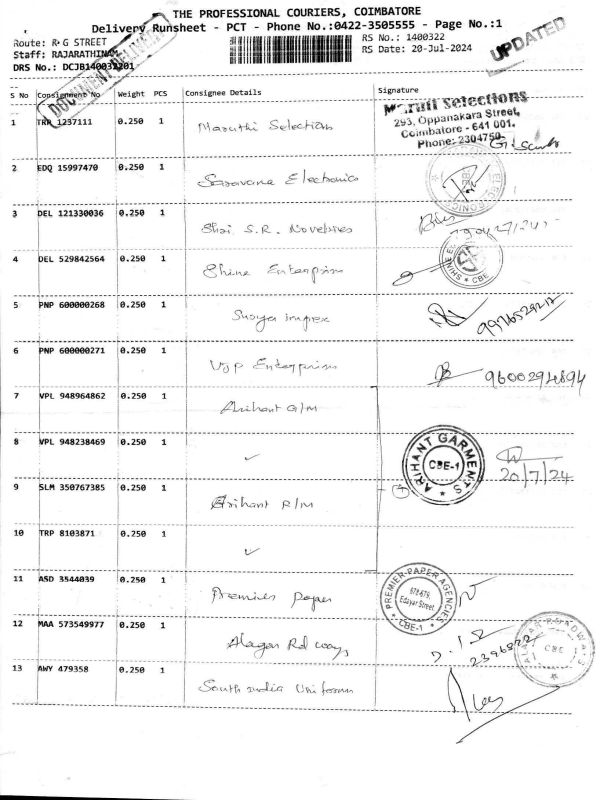 THE PROFESSIONAL COURIERS, COIMBATORE
Delivery Runsheet - PCT - Phone No.:0422-3505555 - Page No.:1
Route: R G STREET
Staff: RAJARATHINAM
DRS No.: DCJB140032201
RS No.: 1400322
RS Date: 20-Jul-2024
UPDATED
DOCUMENT DELIVERED
S No Consignment No Weight PCS Consignee Details Signature
1 TRP 1237111 0.250 1 Maruthi Selection
Maruti Selections
293, Oppanakara Street,
Coimbatore - 641 001.
Phone: 2304750
2 EDQ 15997470 0.250 1 Saravana Electronics
ELECTRONICS
3 DEL 121330036 0.250 1 Shri. S.R. Novelties
4 DEL 529842564 0.250 1 Shine Enterprises
SHINE CBE
5 PNP 600000268 0.250 1 Surya impex
6 PNP 600000271 0.250 1 VJP Enterprises
9600294894
7 VPL 948964862 0.250 1 Arihant G/M
8 VPL 948238469 0.250 1 ✓
ARIHANT GARMENTS
CBE-1
20/7/24
9 SLM 350767385 0.250 1 Arihant R/M
10 TRP 8103871 0.250 1 ✓
11 ASD 3544039 0.250 1 Premier paper
PREMIER PAPER AGENCIES
Edayar Street,
CBE-1
12 MAA 573549977 0.250 1 Alagar Rd ways
CBE
13 AWY 479358 0.250 1 South india Uniforms